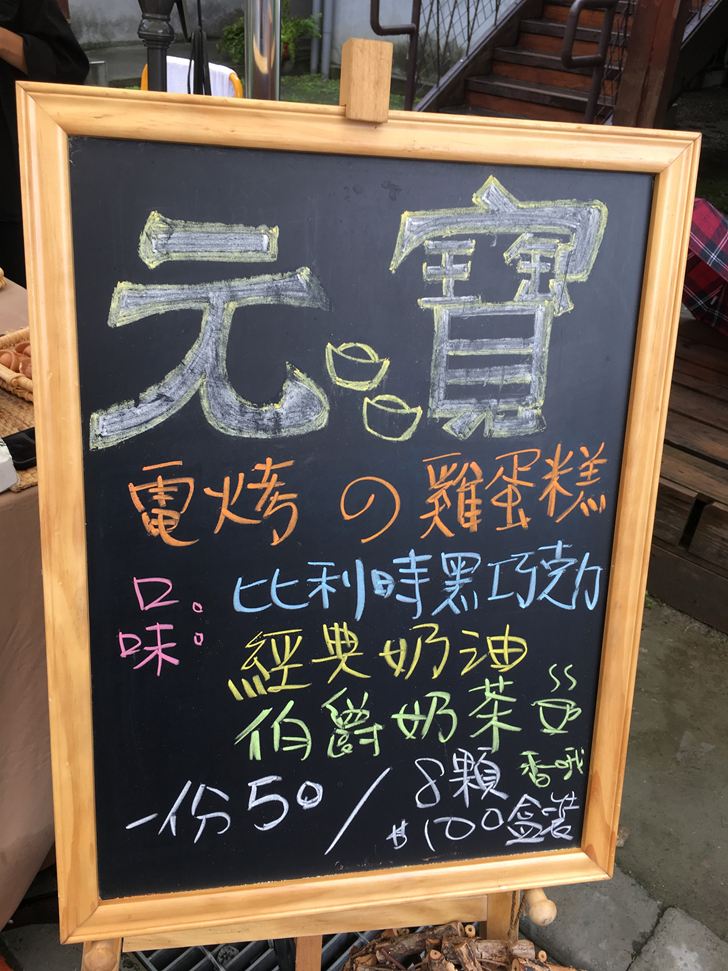 元寶
電烤の雞蛋糕
口味：比利時黑巧克力
經典奶油
伯爵奶茶
香哦
一份50/8顆
$100盒裝